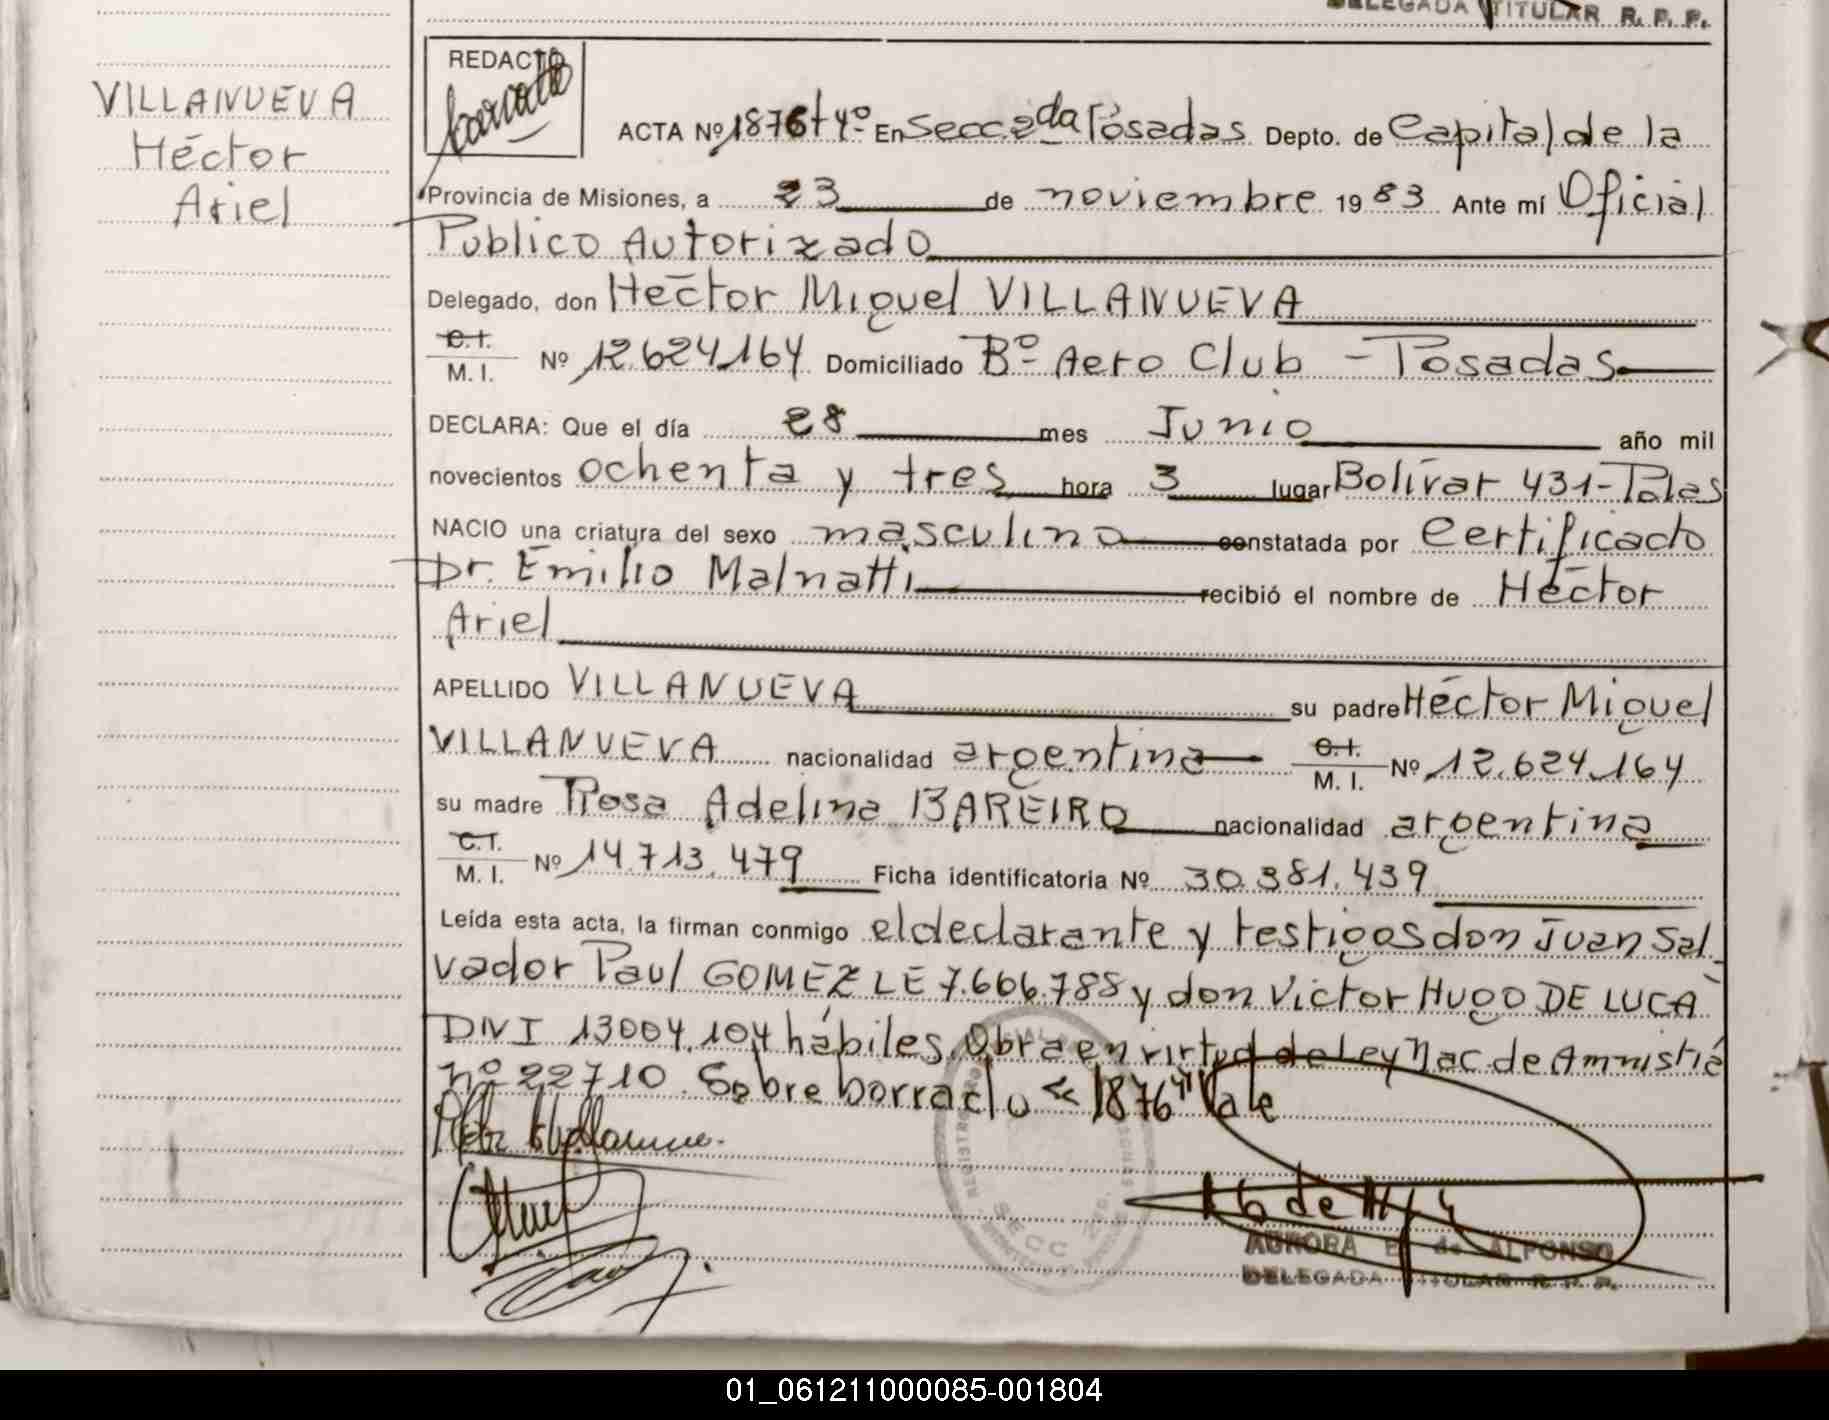 DELEGADA TITULAR R. P. P.
VILLANUEVA
Héctor
Ariel
REDACTO
ACTA Nº 1876 t 4º En Secc 2da Posadas Depto. de Capital de la
Provincia de Misiones, a 23 de noviembre 1983 Ante mí Oficial
Publico Autorizado
Delegado, don Héctor Miguel VILLANUEVA
C.I.
M. I. Nº 12.624.164 Domiciliado Bº Aero Club - Posadas
DECLARA: Que el día 28 mes Junio año mil
novecientos ochenta y tres hora 3 lugar Bolívar 431-
NACIO una criatura del sexo masculino constatada por Certificado
Dr. Emilio Malnatti recibió el nombre de Héctor
Ariel
APELLIDO VILLANUEVA su padre Héctor Miguel
VILLANUEVA nacionalidad argentina C.I. M. I. Nº 12.624.164
su madre Rosa Adelina BAREIRO nacionalidad argentina
C.I.
M. I. Nº 14.713.479 Ficha identificatoria Nº 30.381.439
Leída esta acta, la firman conmigo el declarante y testigos don Juan Sal-
vador Paul GOMEZ LE 7.666.788 y don Victor Hugo DE LUCA
DNI 13004.104 hábiles. Obra en virtud de Ley Nac. de Amnistía
nº 22710. Sobre borrado "1876" Vale
SECC 2
AURORA E. de ALFONSO
DELEGADA TITULAR R. P. P.
01_061211000085-001804